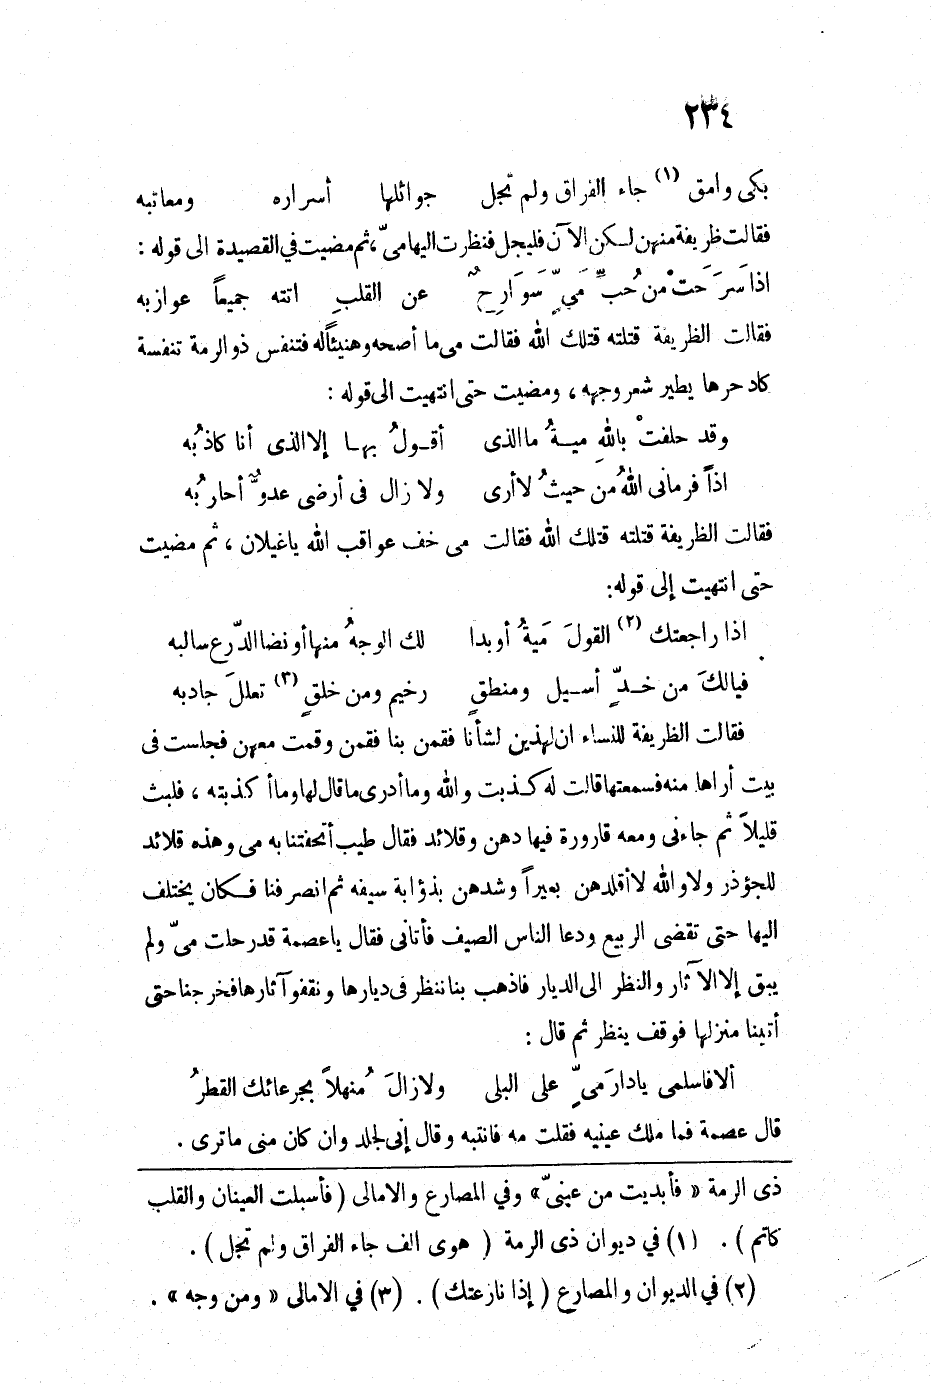 ٢٣٤
بكى وامق (١) جاء الفراق ولم تجل جوائلها أسراره ومعاتبه
فقالت ظريفة منهن لكن الآن فليجل فنظرت اليها ميّ، ثم مضيت في القصيدة الى قوله :
اذا سَرَحَتْ من حُبِّ مَيٍّ سَوَارِحٌ عن القلبِ اتته جميعاً عوازبه
فقالت الظريفة قتلته قتلك الله فقالت مى ما أصحه وهنيئاً له فتنفس ذو الرمة تنفسة
كاد حرها يطير شعر وجهه ، ومضيت حتى انتهيت الى قوله :
وقد حلفتْ باللهِ ميةُ ما الذى أقولُ بها إلا الذى أنا كاذبُه
اذاً فرمانى اللهُ من حيثُ لا أرى ولا زال فى أرضى عدوٌّ أحاربُه
فقالت الظريفة قتلته قتلك الله فقالت مى خف عواقب الله ياغيلان ، ثم مضيت
حتى انتهيت إلى قوله:
اذا راجعتك (٢) القولَ مَيةُ أو بدا لك الوجهُ منها أو نضا الدّرع سالبه
فيالكَ من خدٍّ أسيل ومنطقٍ رخيم ومن خلقٍ (٣) تعللَ جادبه
فقالت الظريفة للنساء ان لهذين لشأنا فقمن بنا فقمن وقمت معهن فجلست فى
بيت أراها منه فسمعتها قالت له كذبت والله وما أدرى ما قال لها وما أكذبته ، فلبث
قليلاً ثم جاءنى ومعه قارورة فيها دهن وقلائد فقال طيب أتحفتنا به مى وهذه قلائد
للجؤذر ولا والله لا أقلدهن بعيراً وشدهن بذؤابة سيفه ثم انصرفنا فكان يختلف
اليها حتى تقضى الربيع ودعا الناس الصيف فأتانى فقال ياعصمة قد رحلت ميّ ولم
يبق إلا الآثار والنظر الى الديار فاذهب بنا ننظر فى ديارها ونقفو آثارها فخرجنا حتى
أتينا منزلها فوقف ينظر ثم قال :
ألا فاسلمى يادارَ مىٍّ على البلى ولا زالَ مُنهلاً بجرعائك القطرُ
قال عصمة فما ملك عينيه فقلت مه فانتبه وقال إنى لجلد وان كان منى ما ترى .
ذى الرمة « فأبديت من عينىّ» وفي المصارع والامالى (فأسبلت العينان والقلب
كاتم) . (١) في ديوان ذى الرمة ( هوى الف جاء الفراق ولم تجل ) .
(٢) في الديوان والمصارع ( إذا نازعتك ) . (٣) في الامالى « ومن وجه » .